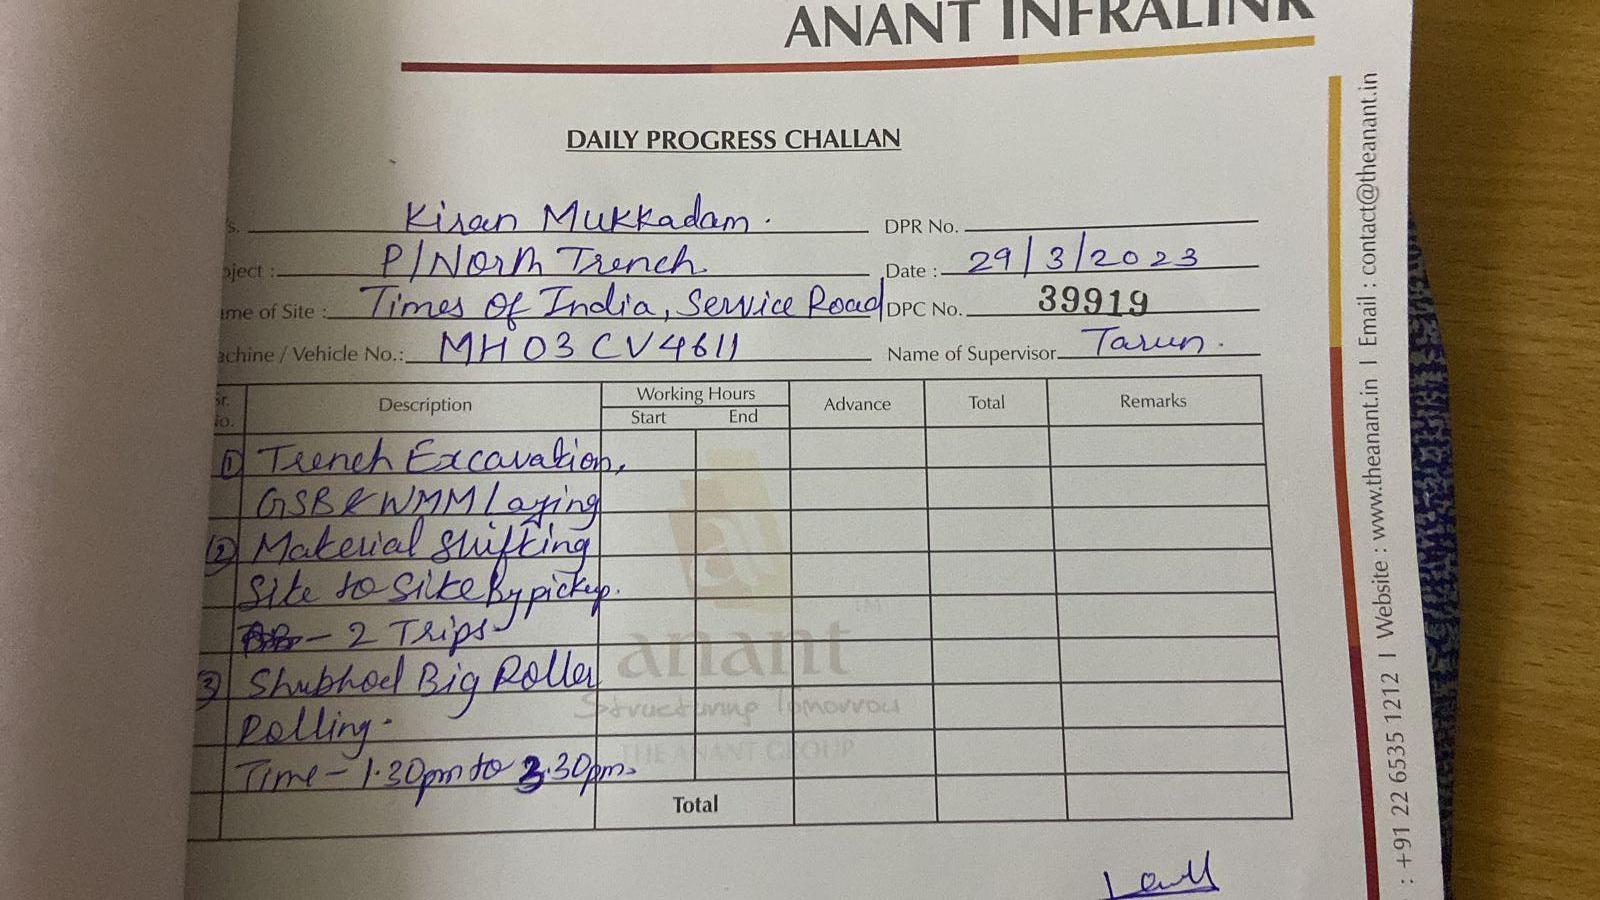 ANANT INFRALINK
DAILY PROGRESS CHALLAN
s. Kiran Mukkadam. DPR No.
oject : P/North Trench Date : 29/3/2023
ame of Site : Times Of India, Service Road DPC No. 39919
achine / Vehicle No.: MH03 CV4611 Name of Supervisor Tarun.
Sr. No. Description Working Hours Start End Advance Total Remarks
1) Trench Excavation,
GSB & WMM Laying
2) Material Shifting
Site to Site By pickup.
- 2 Trips
3) Big Roller
Rolling.
Time - 1.30pm to 3.30pm.
Total
anant
TM
Structuring Tomorrow
THE ANANT GROUP
: +91 22 6535 1212 I Website : www.theanant.in I Email : contact@theanant.in